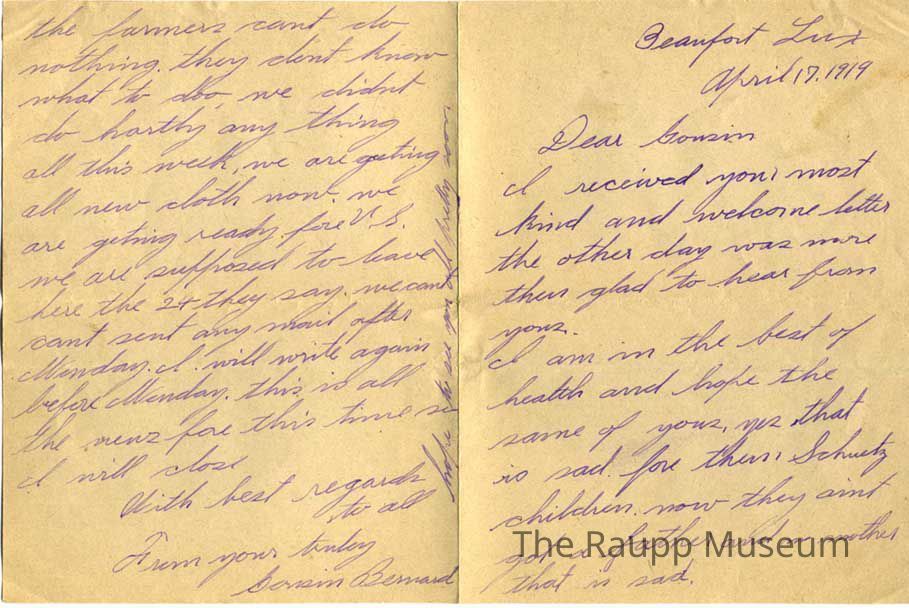 Beaufort Lux
April 17, 1919
Dear Cousin
I received your most
kind and welcome letter
the other day was more
then glad to hear from
yous.
I am in the best of
health and hope the
same of yous, yes that
is sad fore them Schuetz
children. now they aint
got a father and a mother
that is sad.
the farmers cant do
nothing. they dont know
what to doo, we didnt
do hartly any thing
all this week, we are geting
all new cloth now. we
are geting ready fore U.S.
we are supposed to leave
here the 24 they say. we cant
cant sent any mail after
Monday. I will write again
before Monday. this is all
the news fore this time so
I will close
With best regards
to all
From your truley
Cousin Bernard
hope to see you all prety soon.
The Raupp Museum